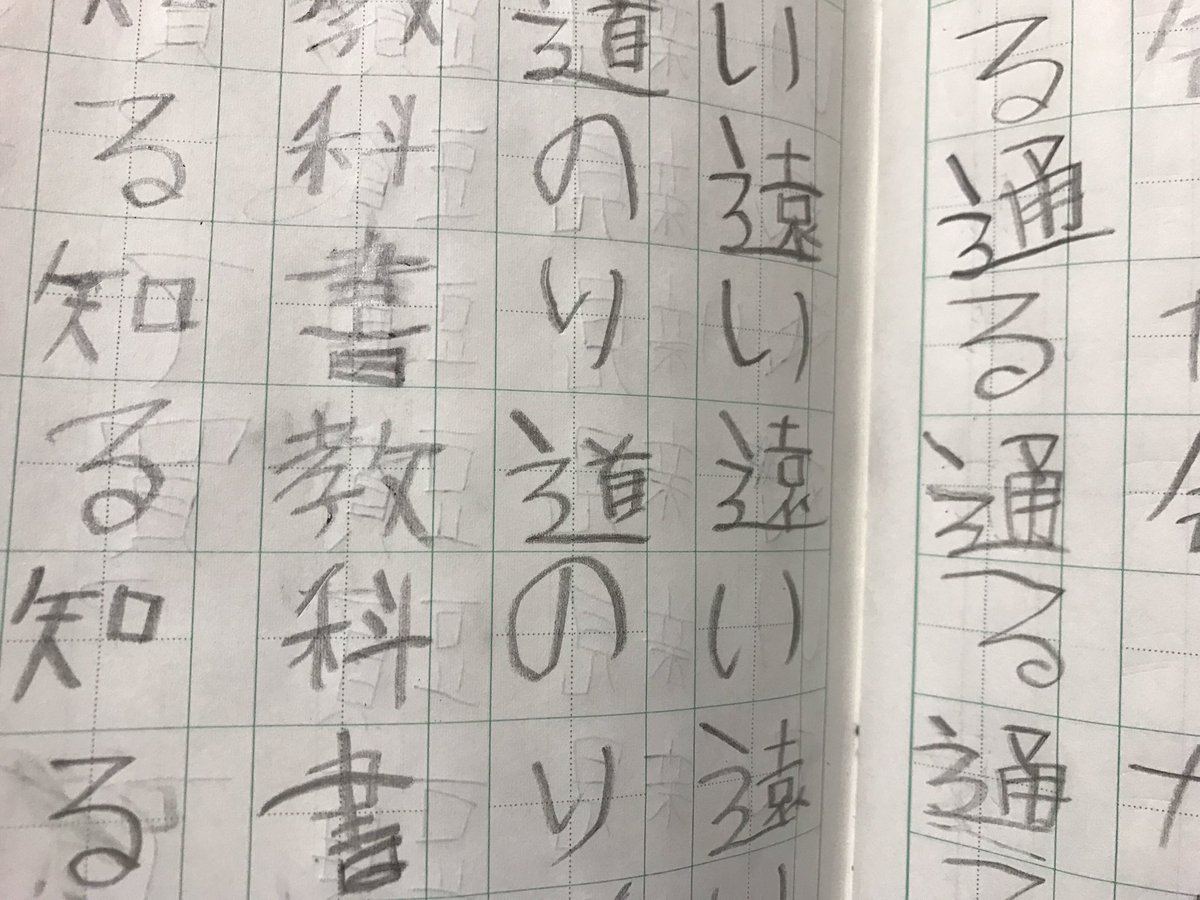 る通る通る通
い遠い遠い遠
道のり道のり
教科書教科書
る知る知る